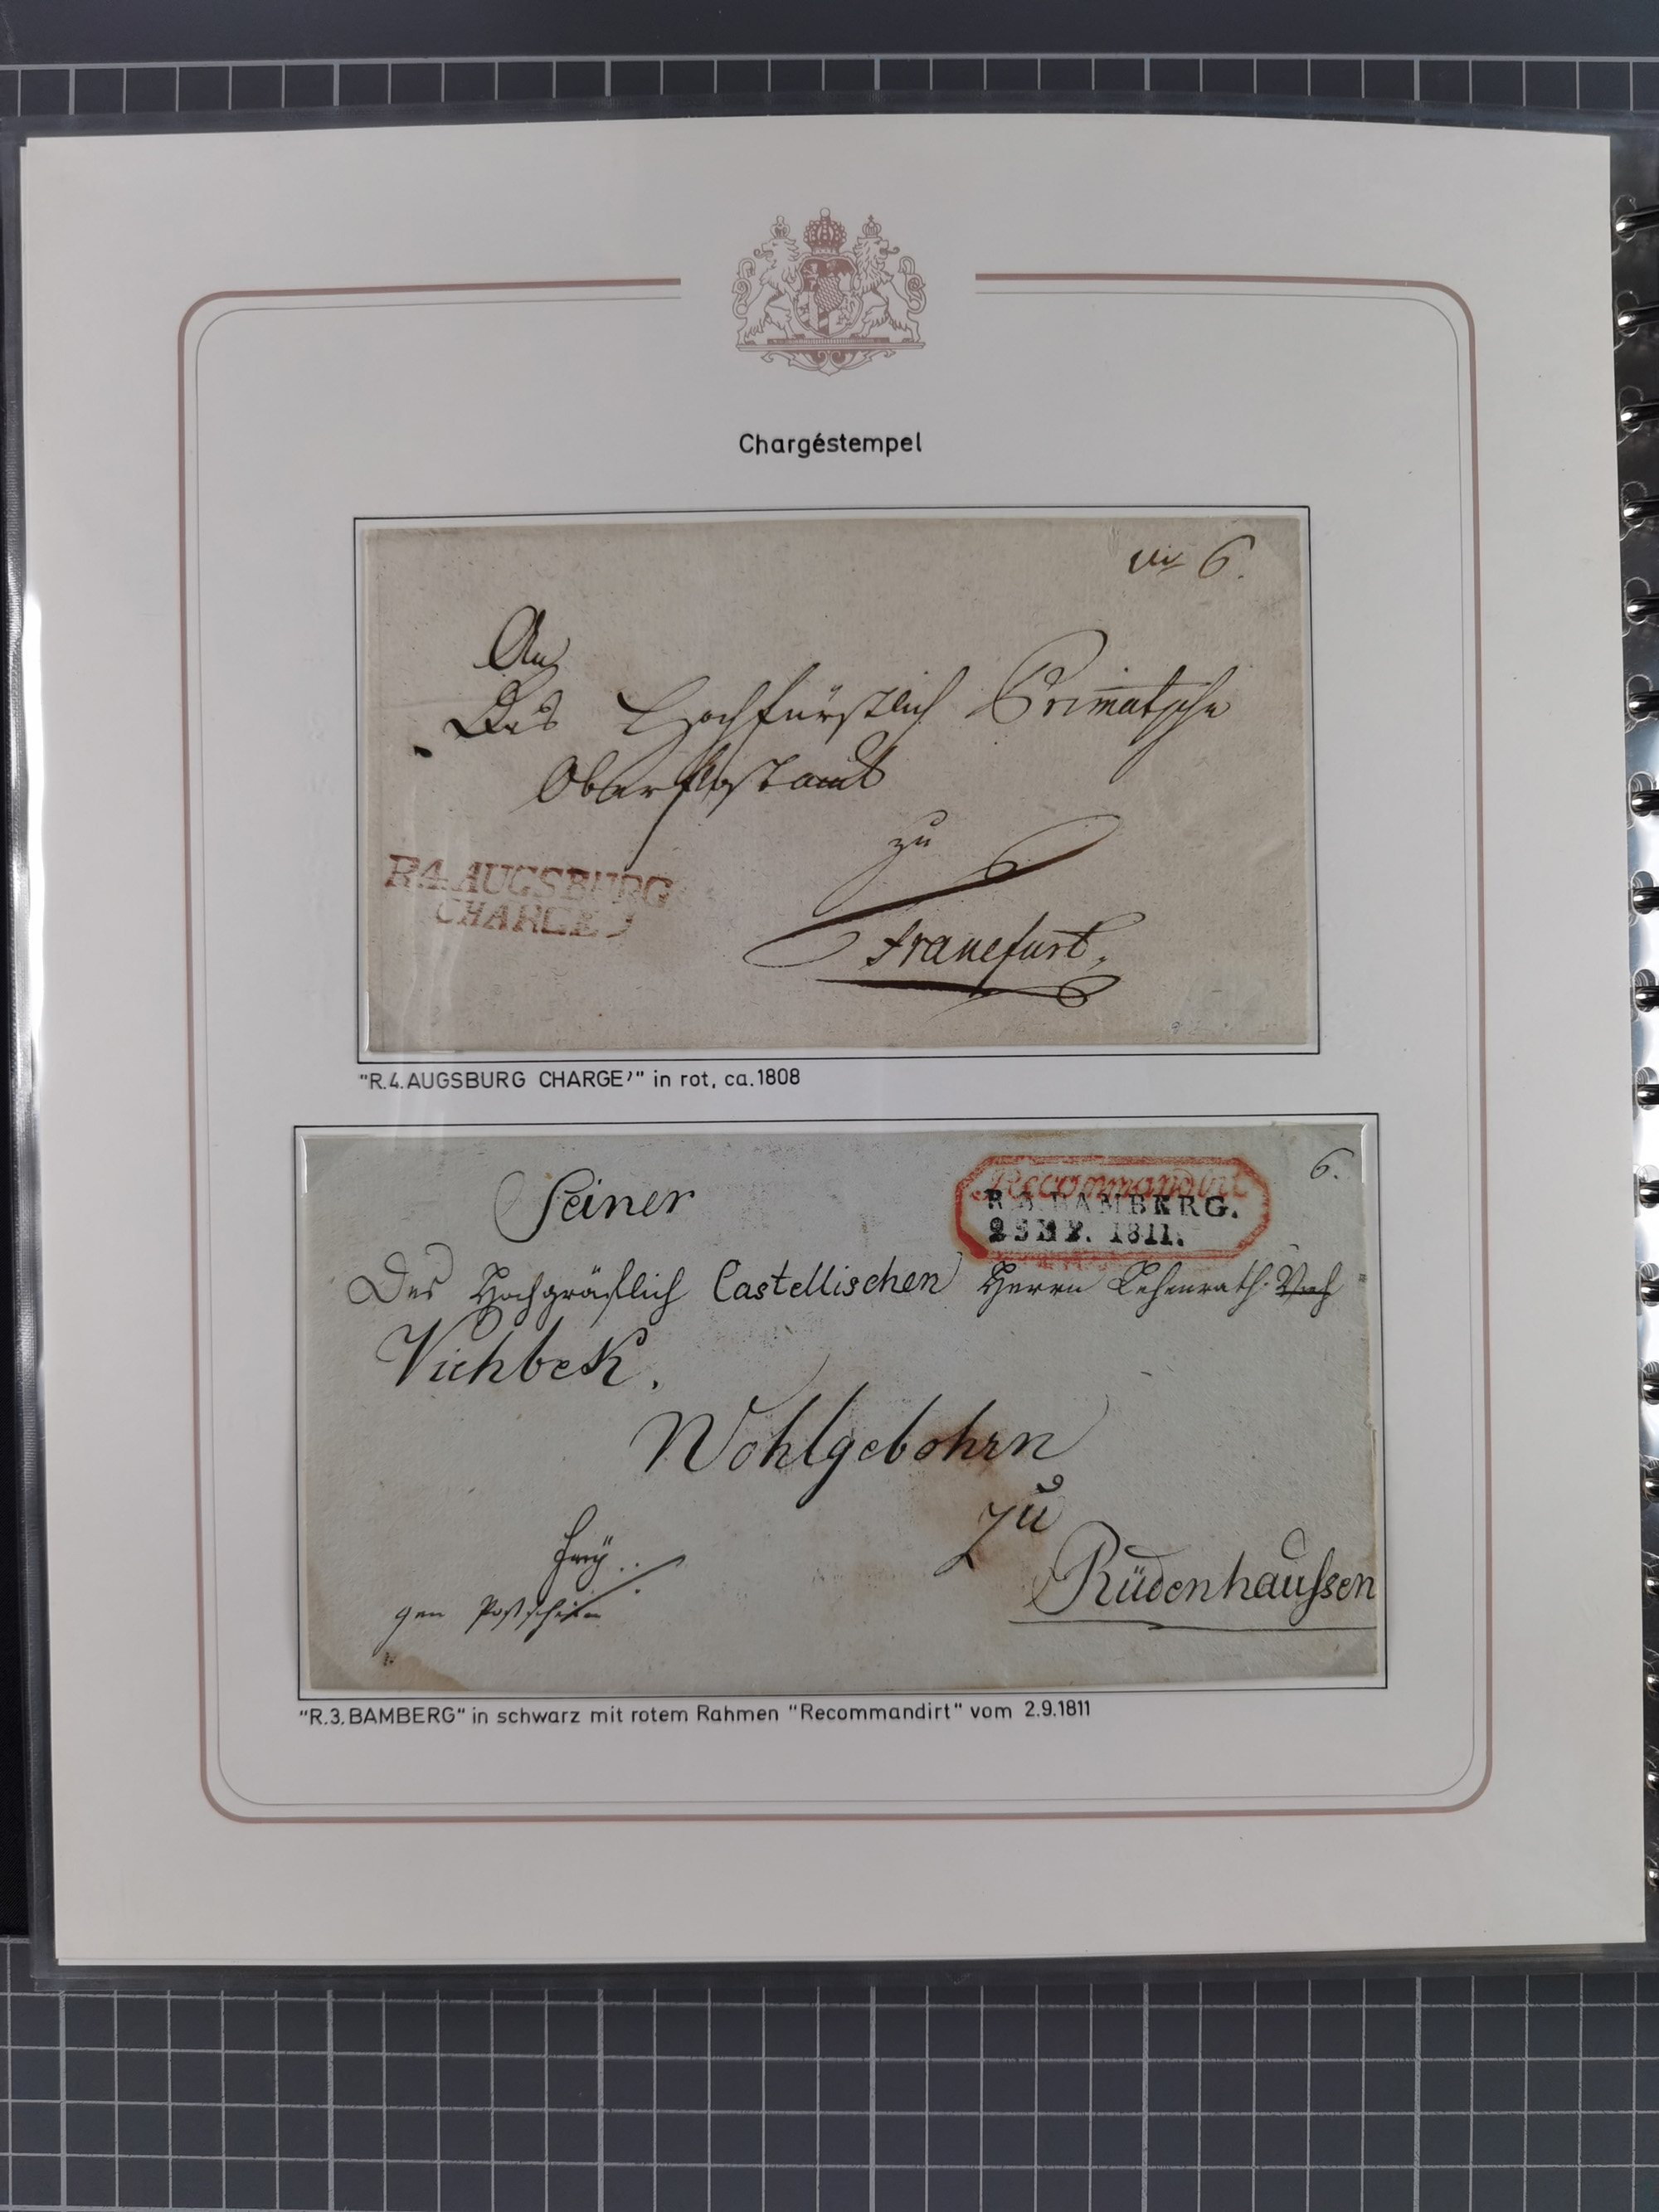 Chargéstempel
№ 6.
An
Das Hochfürstlich Primatsche
Oberpostamt
zu
R.4.AUGSBURG
CHARGE'
Francfurt.
"R.4.AUGSBURG CHARGE'" in rot, ca.1808
6.
Recommandirt
R.3.BAMBERG.
2 SEP. 1811.
Seiner
Des Hochgräflich Castellischen Herrn Lehenrath
Viehbek.
Wohlgebohrn
zu
frey.
gen Postschein
Rüdenhaussen
"R.3.BAMBERG" in schwarz mit rotem Rahmen "Recommandirt" vom 2.9.1811